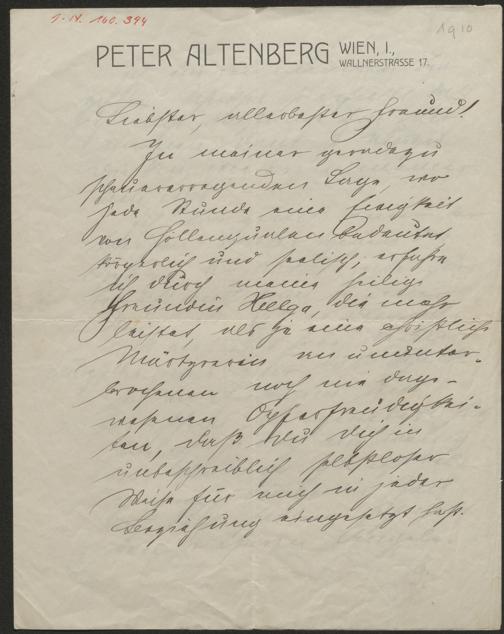 I. N. 160.394
1910
PETER ALTENBERG WIEN, I.,
WALLNERSTRASSE 17.
Liebster, allerbester Freund!
In meiner geradezu
schauererregenden Lage, wo
jede Stunde eine Ewigkeit
von Höllenqualen bedeutet
körperlich und seelisch, erfahre
ich durch meine heilige
Freundin Helga, die mehr
leistet, als je eine christliche
Märtyrerin an ununter-
brochenen noch nie dage-
wesenen Opferfreudigkei-
ten, daß Du Dich in
unbeschreiblich selbstloser
Weise für mich in jeder
Beziehung eingesetzt hast.